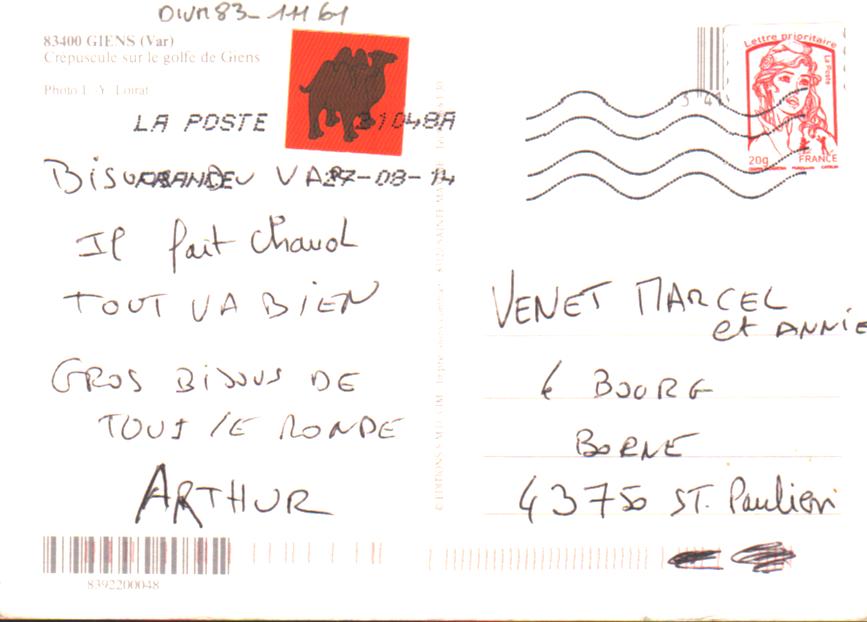 DIVM83-11161
83400 GIENS (Var)
Crepuscule sur le golfe de Giens
Photo L. Y. Loirat
LA POSTE 31048A
FRANCE 27-08-14
BISOUS DU VAR
Il fait chaud
TOUT VA BIEN
GROS BISOUS DE
TOUT LE MONDE
ARTHUR
8392200048
Lettre prioritaire
La Poste
20g FRANCE
VENET MARCEL
et ANNIE
BOURG
BORNE
43750 ST. Paulien